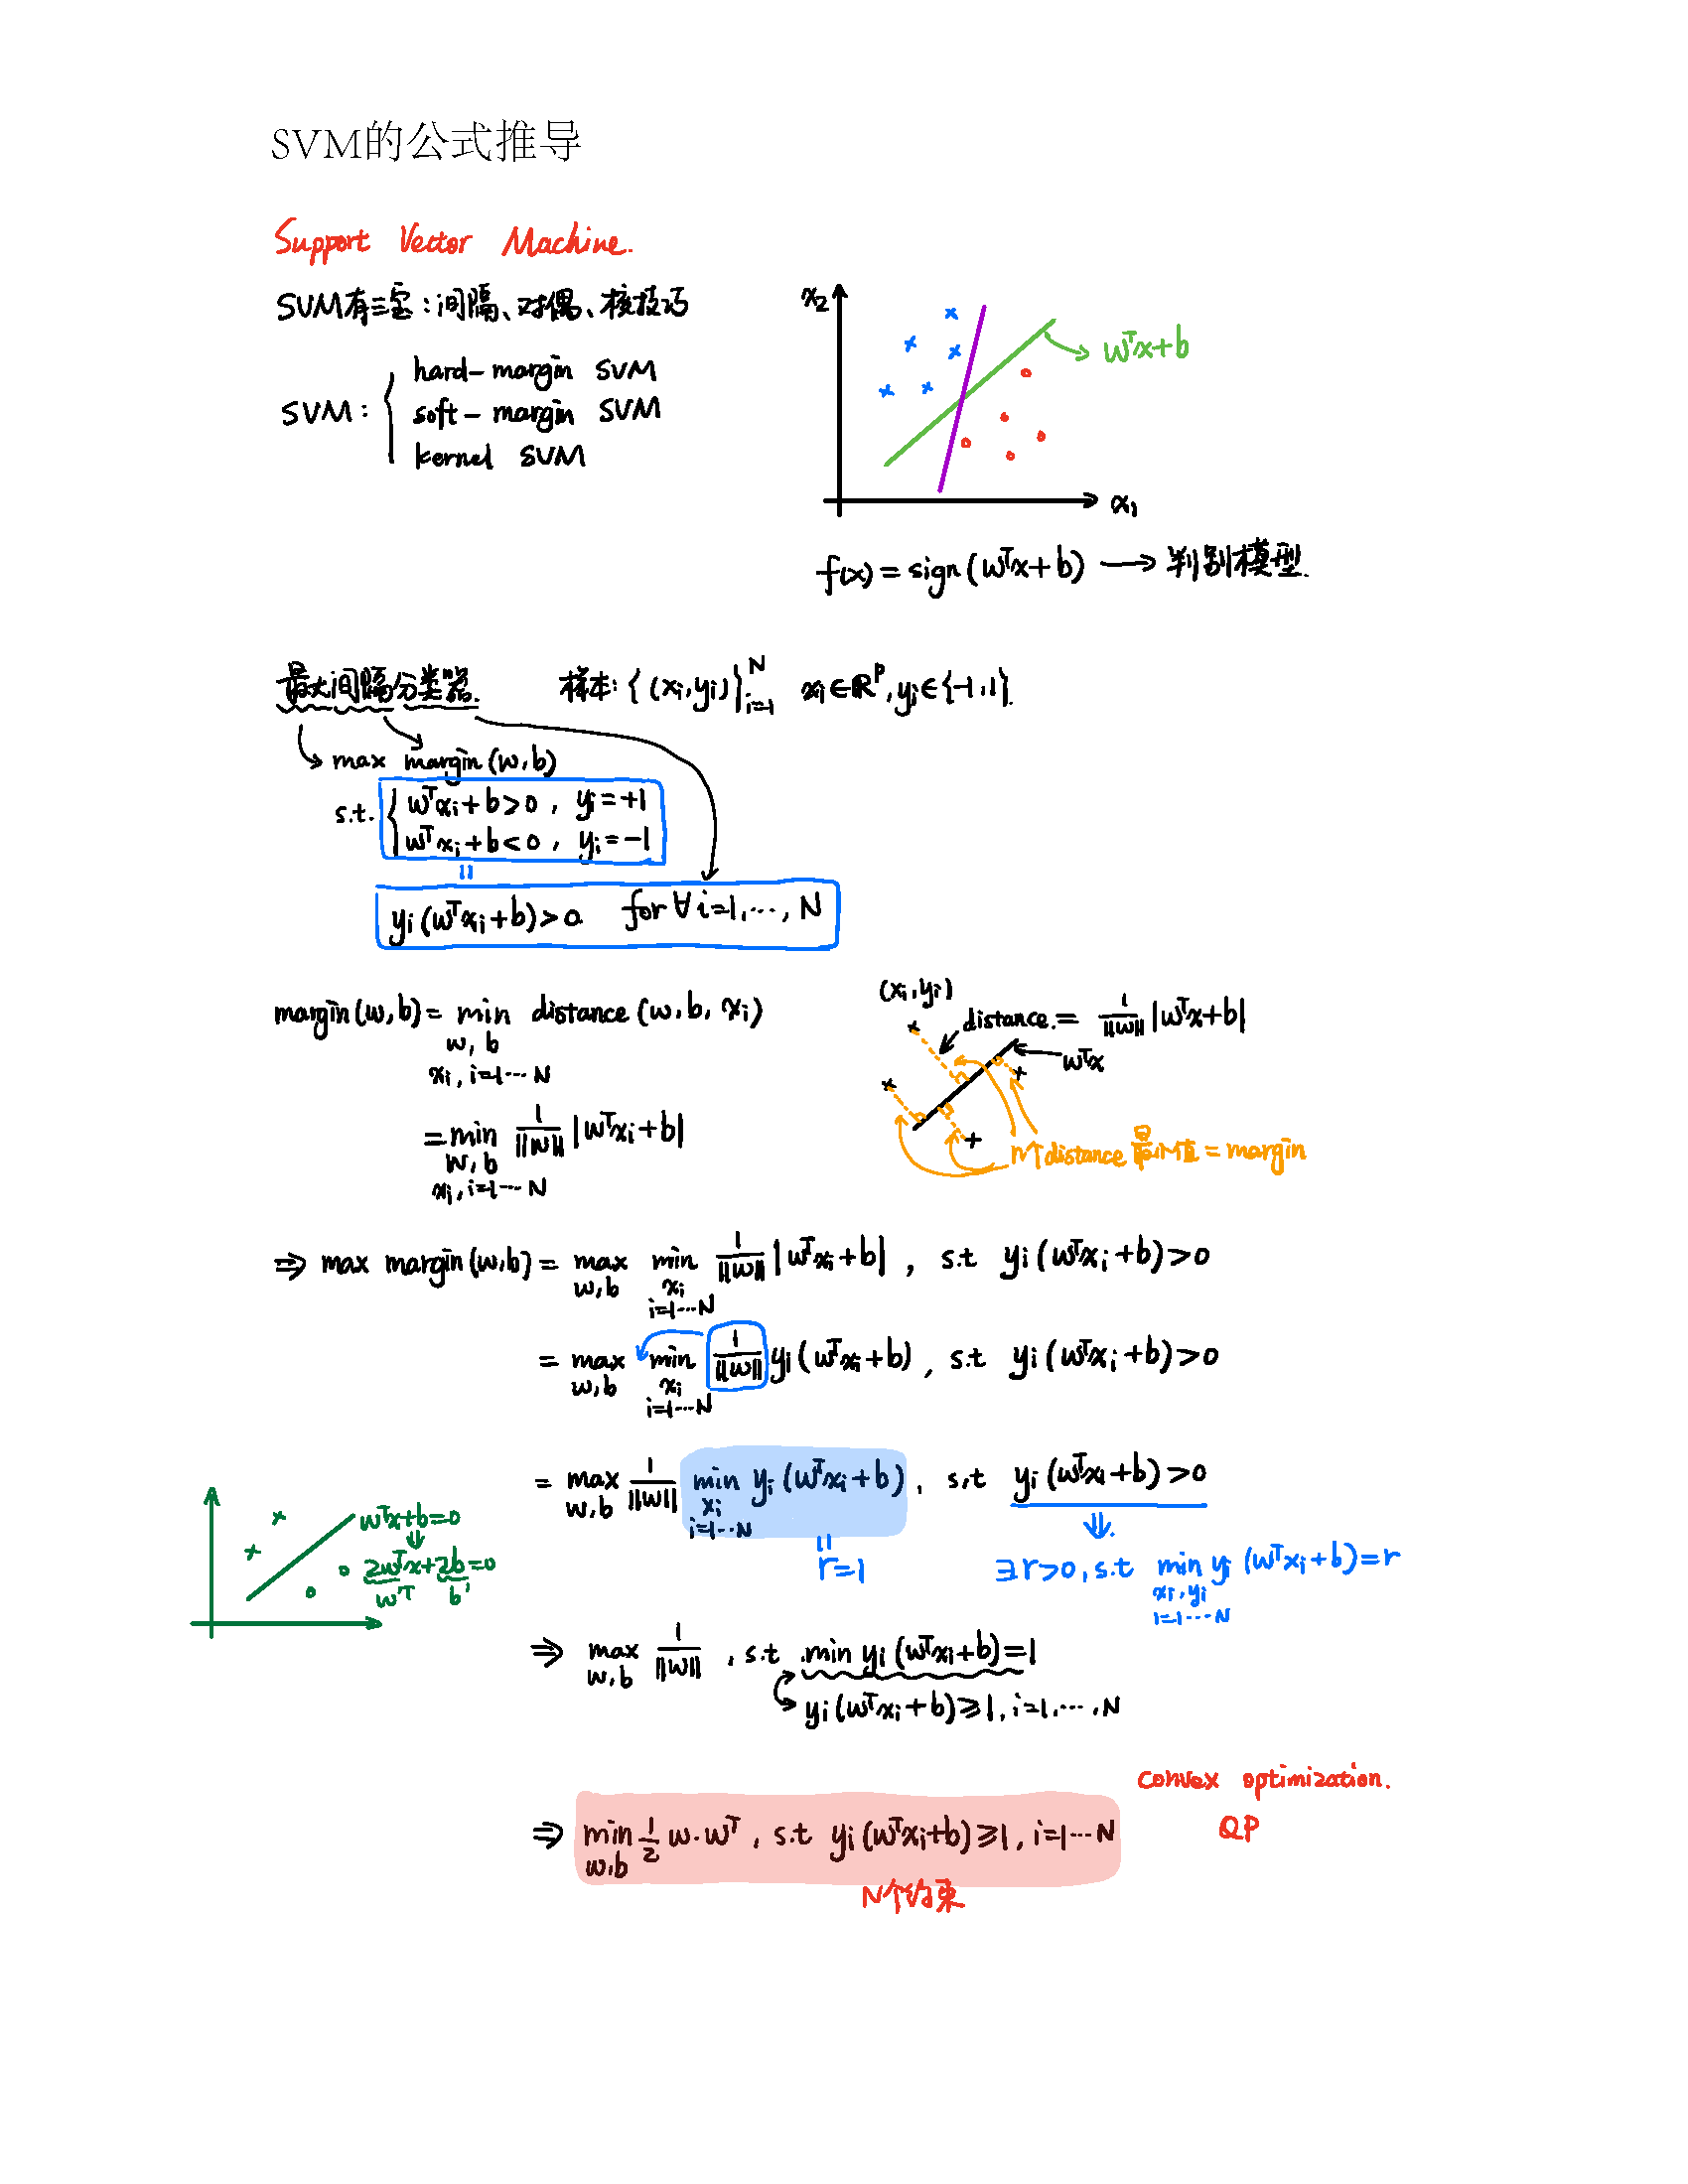 SVM的公式推导
Support Vector Machine.
SVM有三宝：间隔、对偶、核技巧
SVM: { hard-margin SVM
soft-margin SVM
kernel SVM
x₂
wᵀx+b
x₁
f(x) = sign(wᵀx+b) → 判别模型.
最大间隔分类器. 样本: {(xᵢ,yᵢ)}ᵢ₌₁ᴺ xᵢ∈ℝᵖ, yᵢ∈{-1,1}.
max margin(w,b)
s.t. { wᵀxᵢ+b>0, yᵢ=+1
wᵀxᵢ+b<0, yᵢ=-1
=
yᵢ(wᵀxᵢ+b)>0 for ∀ i=1,…,N
margin(w,b) = min distance(w,b,xᵢ)
w,b
xᵢ, i=1⋯N
= min 1/‖w‖ |wᵀxᵢ+b|
w,b
xᵢ, i=1⋯N
(xᵢ,yᵢ)
distance. = 1/‖w‖ |wᵀx+b|
wᵀx
n个distance最小值 = margin
⇒ max margin(w,b) = max min 1/‖w‖ |wᵀxᵢ+b|, s.t yᵢ(wᵀxᵢ+b)>0
w,b xᵢ
i=1⋯N
= max min 1/‖w‖ yᵢ(wᵀxᵢ+b), s.t yᵢ(wᵀxᵢ+b)>0
w,b xᵢ
i=1⋯N
= max 1/‖w‖ min yᵢ(wᵀxᵢ+b), s.t yᵢ(wᵀxᵢ+b)>0
w,b xᵢ
i=1⋯N
=
r=1
⇓
∃r>0, s.t min yᵢ(wᵀxᵢ+b)=r
xᵢ,yᵢ
i=1⋯N
wᵀx+b=0
⇓
2wᵀx+2b=0
wᵀ b'
⇒ max 1/‖w‖, s.t min yᵢ(wᵀxᵢ+b)=1
w,b
yᵢ(wᵀxᵢ+b)≥1, i=1,⋯,N
convex optimization.
QP
⇒ min 1/2 w·wᵀ, s.t yᵢ(wᵀxᵢ+b)≥1, i=1⋯N
w,b
N个约束